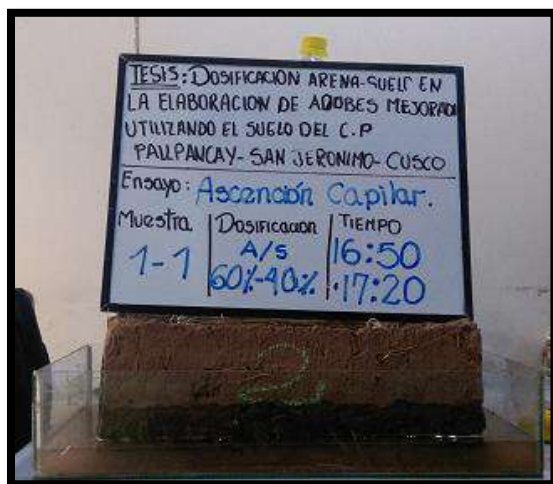 TESIS: DOSIFICACION ARENA-SUELO EN
LA ELABORACION DE ADOBES MEJORADO
UTILIZANDO EL SUELO DEL C.P
PALLPANCAY- SAN JERONIMO- CUSCO
Ensayo: Ascención Capilar.
Muestra Dosificacion TIEMPO
A/S 16:50
1-1 60%-40% 17:20
2